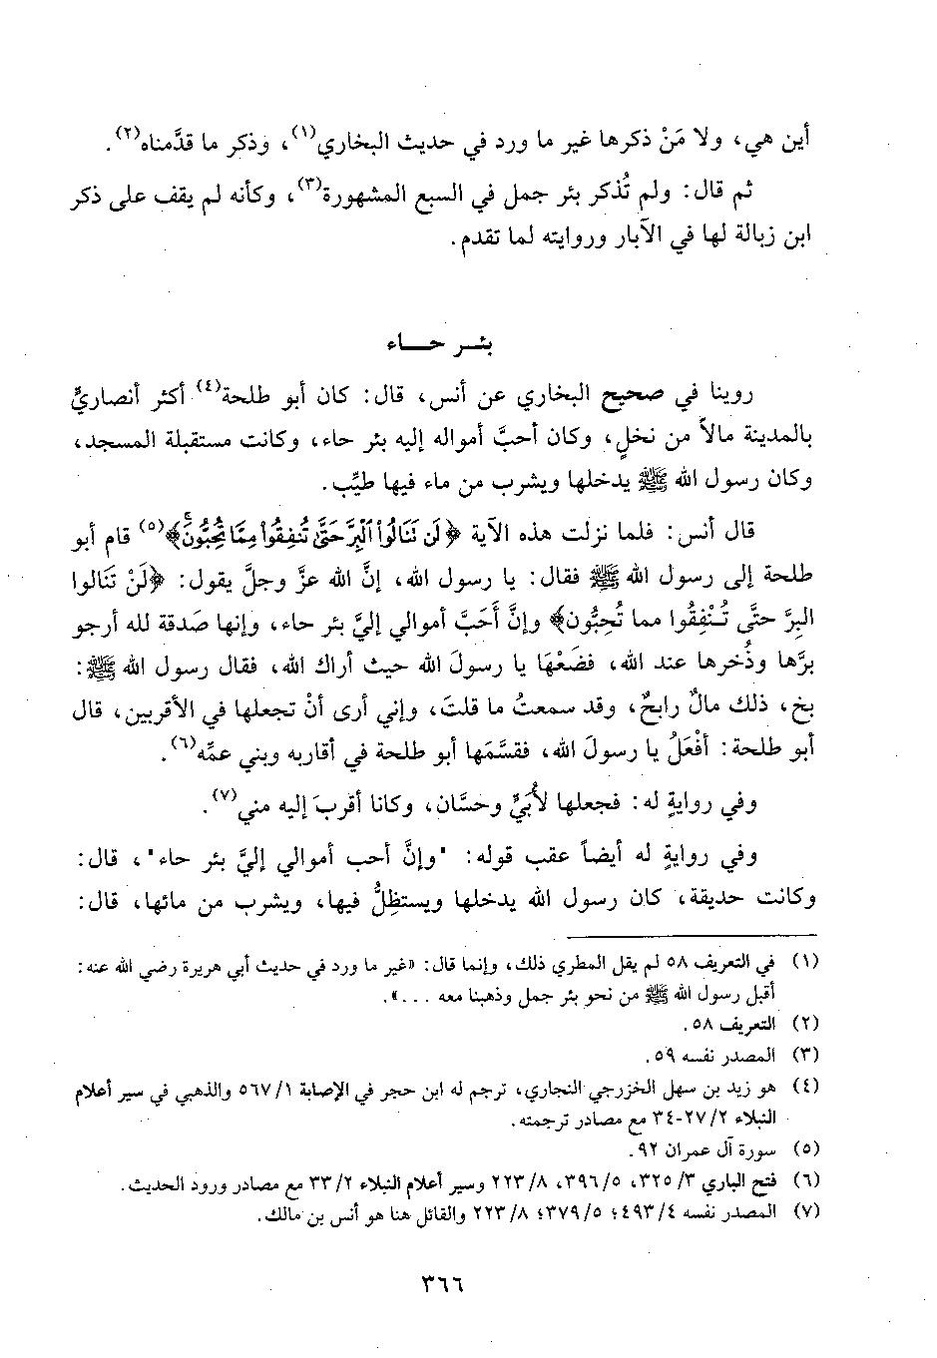 أين هي، ولا مَنْ ذكرها غير ما ورد في حديث البخاري(١)، وذكر ما قدَّمناه(٢).
ثم قال: ولم تُذكر بئر جمل في السبع المشهورة(٣)، وكأنه لم يقف على ذكر
ابن زبالة لها في الآبار وروايته لما تقدم.
بئـر حـاء
روينا في صحيح البخاري عن أنس، قال: كان أبو طلحة(٤) أكثر أنصاريٍّ
بالمدينة مالاً من نخلٍ، وكان أحبَّ أمواله إليه بئر حاء، وكانت مستقبلة المسجد،
وكان رسول الله ﷺ يدخلها ويشرب من ماء فيها طيِّب.
قال أنس: فلما نزلت هذه الآية ﴿لَن نَنَالُوا۟ ٱلْبِرَّ حَتَّىٰ تُنفِقُوا۟ مِمَّا تُحِبُّونَۚ﴾(٥) قام أبو
طلحة إلى رسول الله ﷺ فقال: يا رسول الله، إنَّ الله عزَّ وجلَّ يقول: ﴿لَنْ تَنَالوا
البِرَّ حتَّى تُـنْفِقُوا مما تُحِبُّون﴾ وإنَّ أَحَبَّ أموالي إليَّ بئر حاء، وإنها صَدقة لله أرجو
برَّها وذُخرها عند الله، فضَعْهَا يا رسولَ الله حيث أراك الله، فقال رسول الله ﷺ:
بخ، ذلك مالٌ رابحٌ، وقد سمعتُ ما قلتَ، وإني أرى أنْ تجعلها في الأقربين، قال
أبو طلحة: أفْعَلُ يا رسولَ الله، فقسَّمَها أبو طلحة في أقاربه وبني عمِّه(٦).
وفي روايةٍ له: فجعلها لأُبَيٍّ وحسَّان، وكانا أقربَ إليه مني(٧).
وفي روايةٍ له أيضاً عقب قوله: "وإنَّ أحب أموالي إليَّ بئر حاء"، قال:
وكانت حديقة، كان رسول الله يدخلها ويستظِلُّ فيها، ويشرب من مائها، قال:
(١) في التعريف ٥٨ لم يقل المطري ذلك، وإنما قال: «غير ما ورد في حديث أبي هريرة رضي الله عنه:
أقبل رسول الله ﷺ من نحو بئر جمل وذهبنا معه ...».
(٢) التعريف ٥٨.
(٣) المصدر نفسه ٥٩.
(٤) هو زيد بن سهل الخزرجي النجاري، ترجم له ابن حجر في الإصابة ٥٦٧/١ والذهبي في سير أعلام
النبلاء ٢٧/٢-٣٤ مع مصادر ترجمته.
(٥) سورة آل عمران ٩٢.
(٦) فتح الباري ٣٢٥/٣، ٣٩٦/٥، ٢٢٣/٨ وسير أعلام النبلاء ٣٣/٢ مع مصادر ورود الحديث.
(٧) المصدر نفسه ٤٩٣/٤؛ ٣٧٩/٥؛ ٢٢٣/٨ والقائل هنا هو أنس بن مالك.
٣٦٦